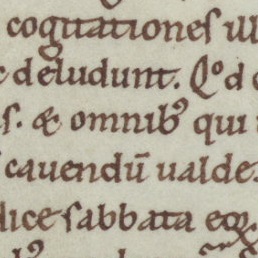 cogitationes ill
deludunt. Qͦd
s. & omnibꝰ qui
cauendū ualde.
lice sabbata eoꝝ